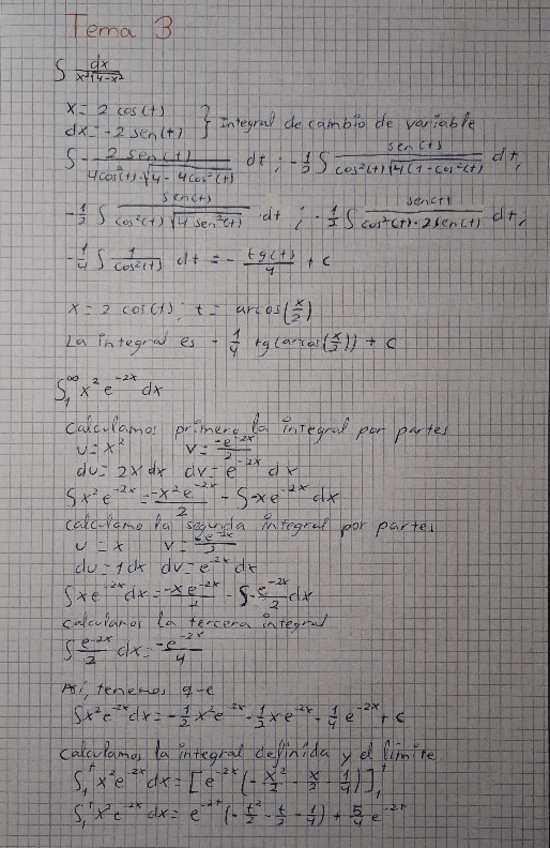 Tema 3
∫ dx / (x²√(4-x²))
x = 2 cos(t)
dx = -2 sen(t) } Integral de cambio de variable
∫ - 2 sen(t) / (4cos²(t)·√(4 - 4cos²(t))) dt ; -1/2 ∫ sen(t) / (cos²(t)√(4(1-cos²(t)))) dt ;
-1/2 ∫ sen(t) / (cos²(t)√(4 sen²(t))) · dt ; -1/2 ∫ sen(t) / (cos²(t)·2sen(t)) dt ;
-1/4 ∫ 1/cos²(t) dt = - tg(t)/4 + c
x = 2 cos(t) ; t = arcos(x/2)
La integral es - 1/4 tg(arcos(x/2)) + c
∫₁^∞ x² e^(-2x) dx
Calculamos primero la integral por partes
u = x² v = -e^(-2x)/2
du = 2x dx dv = e^(-2x) dx
∫x² e^(-2x) = -x² e^(-2x)/2 - ∫-x e^(-2x) dx
calculamo la segunda integral por partes
u = x v = -e^(-2x)/2
du = 1 dx dv = e^(-2x) dx
∫x e^(-2x) dx = -x e^(-2x)/2 - ∫- e^(-2x)/2 dx
calculamos la tercera integral
∫ e^(-2x)/2 dx = -e^(-2x)/4
Así, tenemos que
∫x² e^(-2x) dx = -1/2 x² e^(-2x) - 1/2 x e^(-2x) - 1/4 e^(-2x) + c
Calculamos la integral definida y el límite
∫₁^t x² e^(-2x) dx = [e^(-2x)(-x²/2 - x/2 - 1/4)]₁^t
∫₁^t x² e^(-2x) dx = e^(-2t)(-t²/2 - t/2 - 1/4) + 5/4 e^(-2t)